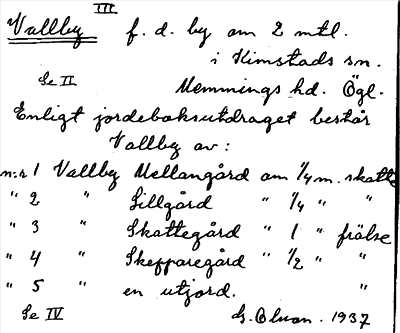 III
Vallby f. d. by om 2 mtl.
i Kimstads sn.
Se II Memmings hd. Ögl.
Enligt jordeboksutdraget består
Vallby av:
n:r 1 Vallby Mellangård om 1/4 m. skatte
" 2 " Lillgård " 1/4 " "
" 3 " Skattegård " 1 " frälse
" 4 " Skepparegård " 1/2 " "
" 5 " en utjord. "
Se IV G. Olson. 1937